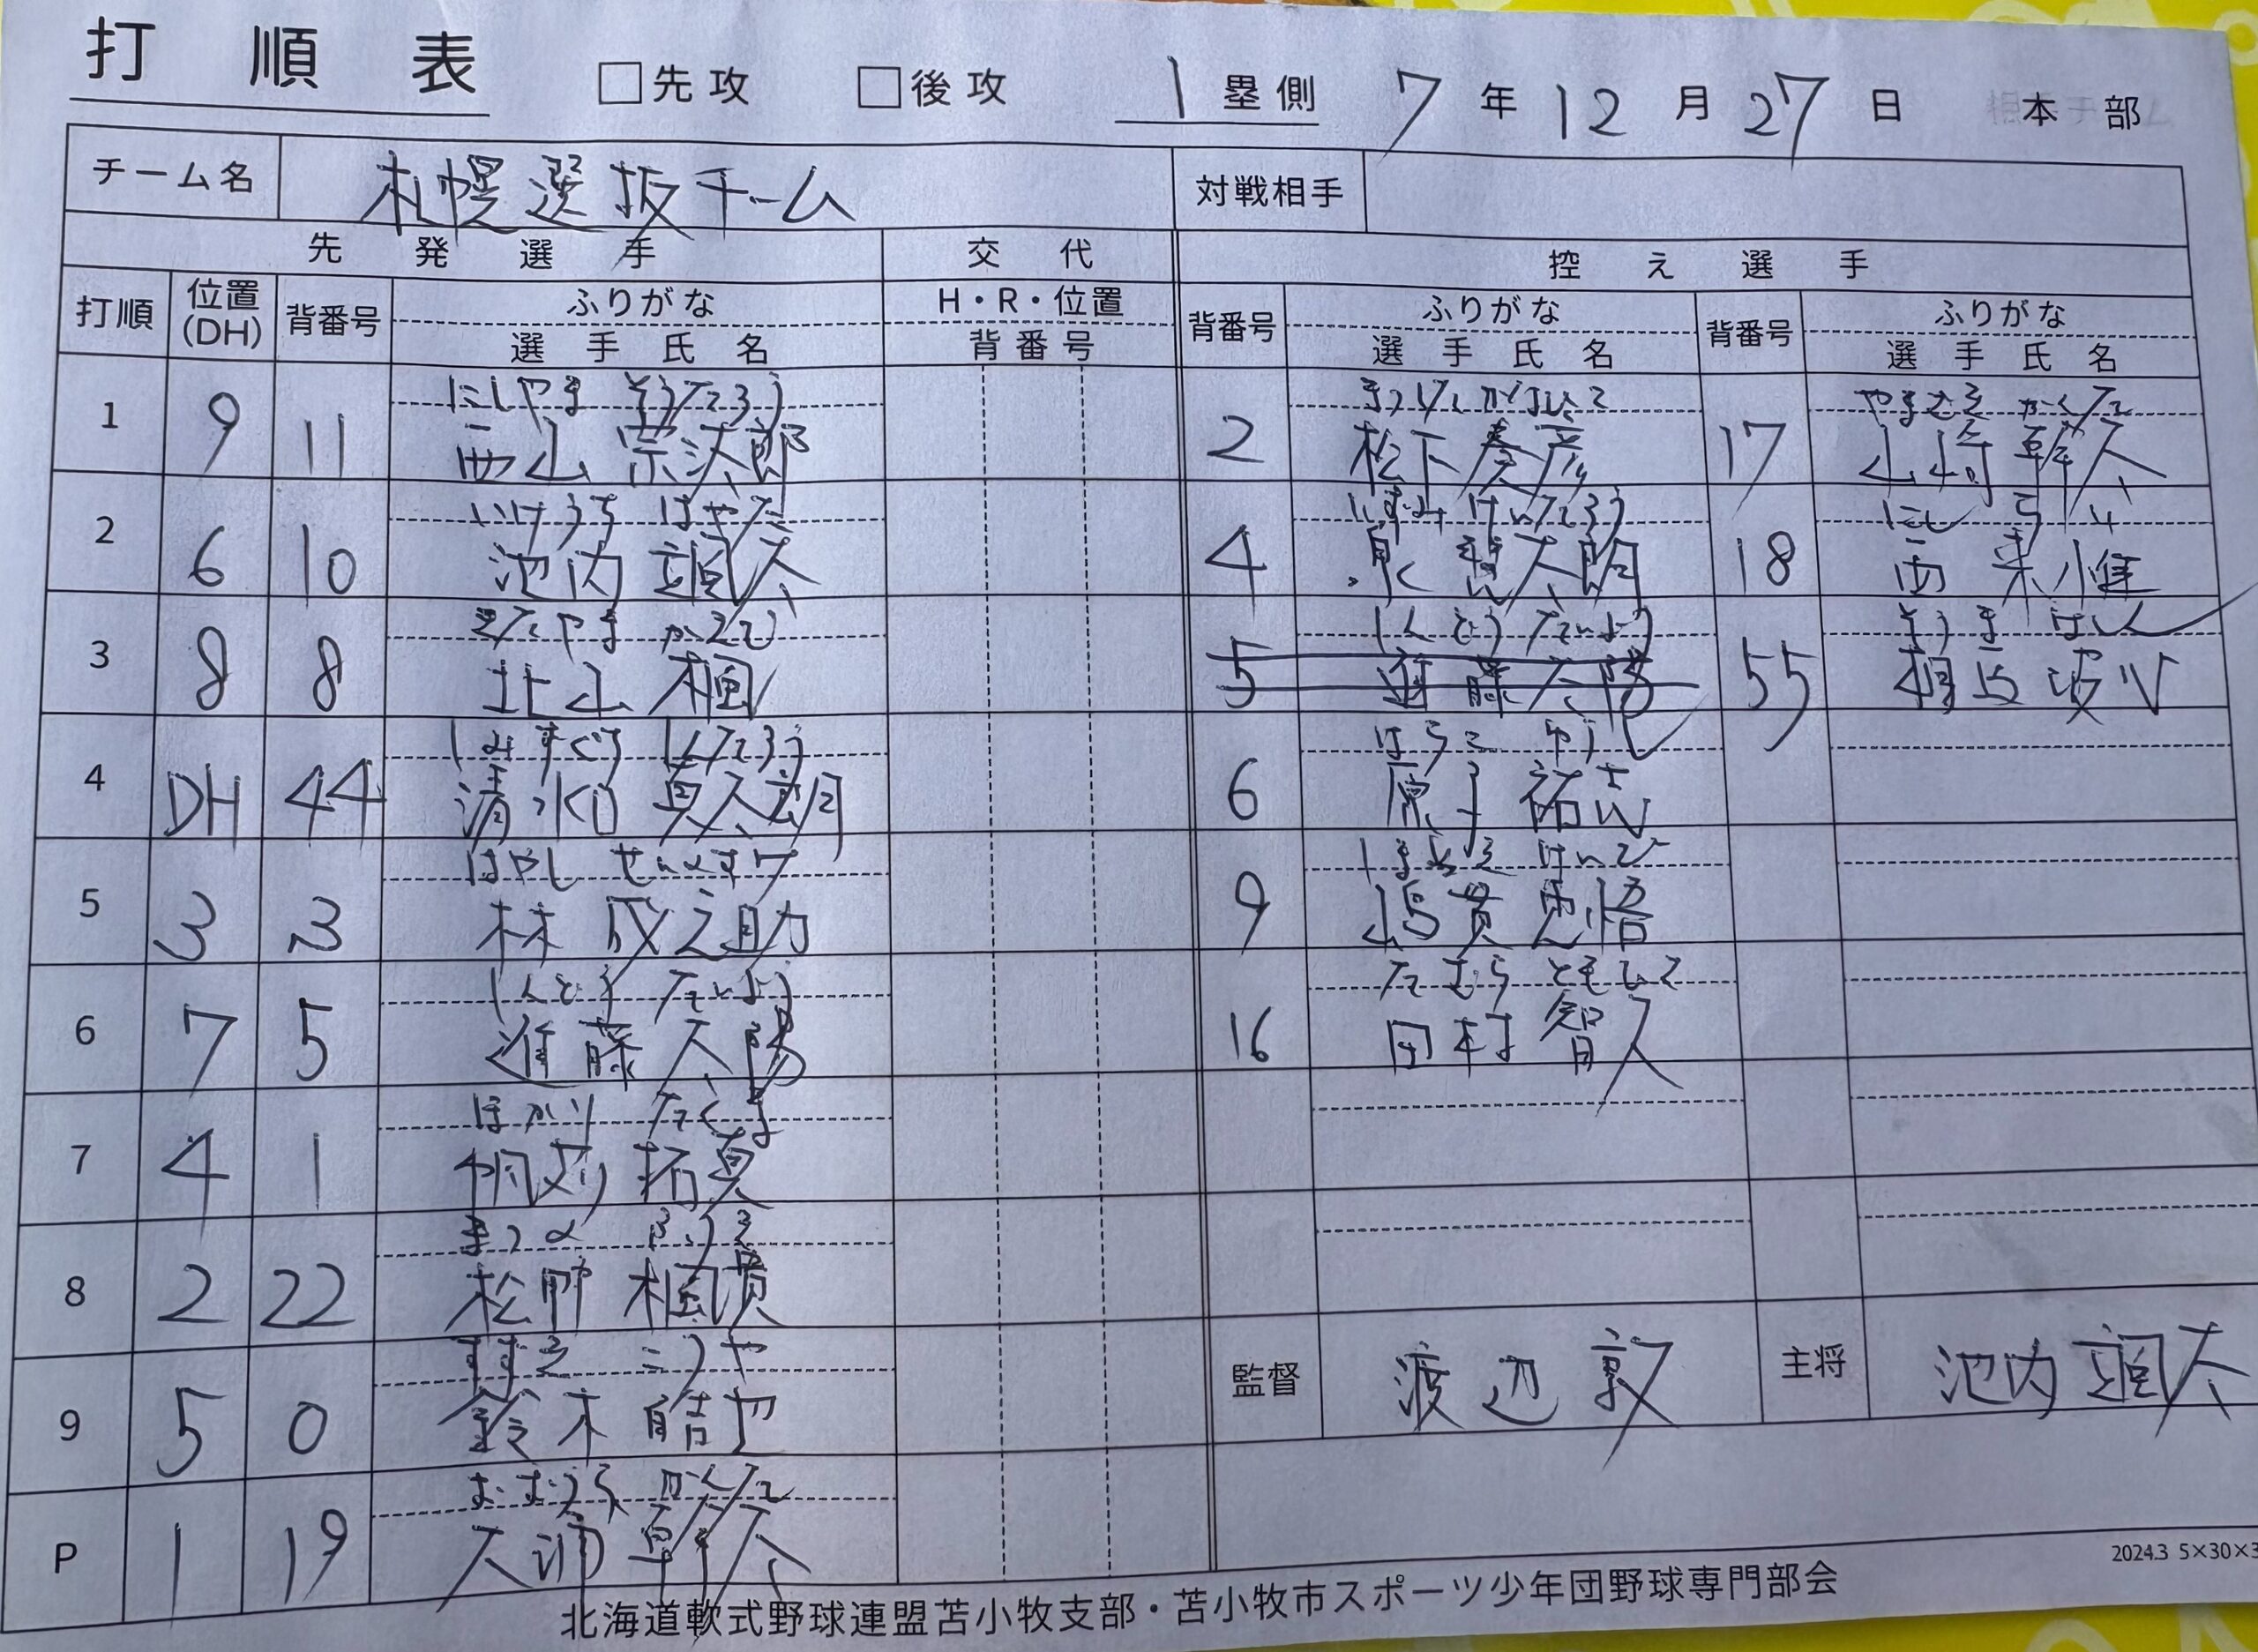 打順表 □先攻 □後攻 1塁側 7年12月27日 本部
チーム名 札幌選抜チーム 対戦相手
先発選手 交代 控え選手
打順 位置(DH) 背番号 ふりがな 選手氏名 H・R・位置 背番号 背番号 ふりがな 選手氏名 背番号 ふりがな 選手氏名
にしやま そうたろう
1 9 11 西山 宗汰郎
いけうち はやた
2 6 10 池内 颯太
きたやま かえで
3 8 8 北山 楓
しみずぐち しんたろう
4 DH 44 清水口 真太朗
はやし せいのすけ
5 3 3 林 成之助
しんどう たいよう
6 7 5 進藤 太陽
ほかり たくま
7 4 1 帆苅 拓真
まつの ふうま
8 2 22 松野 楓
すずき こうや
9 5 0 鈴木 皓也
おおうら かんた
P 1 19 大浦 幹太
まつした かなひこ
2 松下 奏彦
いずみ けいたろう
4 泉 慧太朗
しんどう たいよう
5 進藤 太陽
はらこ ゆうし
6 原子 祐志
しまぬき けいご
9 嶋貫 恵悟
たむら ともひと
16 田村 智人
やまざき かんた
17 山崎 幹太
にし らい
18 西 来惟
そうま はん
55 相馬 波
監督 渡辺敦 主将 池内颯太
2024.3 5×30×3
北海道軟式野球連盟苫小牧支部・苫小牧市スポーツ少年団野球専門部会